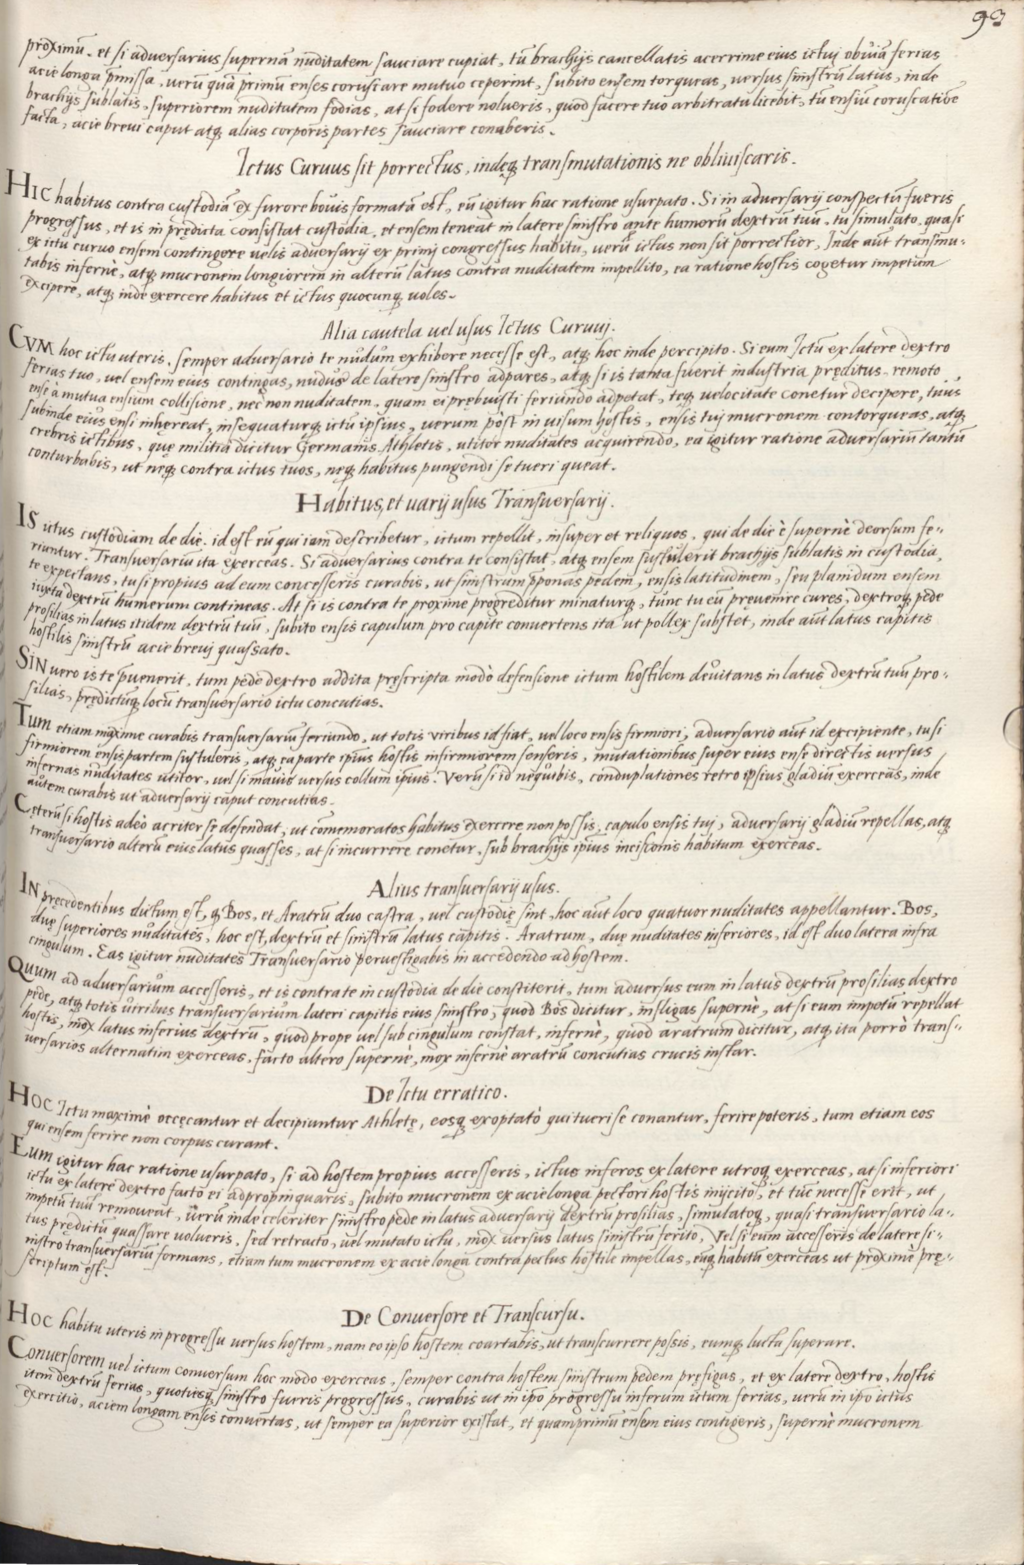 93
proximũ. et si adversarius supernã nuditatem sauciare cupiat, tũ brachijs cancellatis acerrime eius ictuj obuiã ferias
acie longa pmissa, uerũ quã primũ enses coruscare mutuo ceperint, subito ensem torqueas, versus sinistrũ latus, inde
brachijs sublatis, superiorem nuditatem fodias, at si fodere nolueris, quod facere tuo arbitratu licebit, tũ ensiũ coruscatiõe
facta, acie brevi caput atq; alias corporis partes sauciare conaberis.
Ictus Curuus sit porrectus, indeq; transmutationis ne obliuiscaris.
HIC habitus contra custodiã ex furore bouis formatã est, eũ igitur hac ratione usurpato. Si in adversarij conspectũ fueris
progressus, et is in prędicta consistat custodia, et ensem teneat in latere sinistro ante humerũ dextrũ tuũ. tu simulato, quasi
ex ictu curuo ensem contingere uelis adversarij ex primj congressus habitu, uerũ ictus non sit porrectior, Inde aũt transmu-
tabis infernè, atq; mucronem longiorem in alterũ latus contra nuditatem impellito, ea ratione hostis cogetur impetum
excipere, atq; inde exercere habitus et ictus quocunq; uoles.
Alia cautela uel usus Ictus Curuuj.
CVM hoc ictu uteris, semper adversario te nudum exhibere necesse est, atq; hoc inde percipito. Si eum Ictũ ex latere dextro
ferias tuo, vel ensem eius contingas, nudus de latere sinistro adpares, atq; si is tanta fuerit industria pręditus, remoto
ense à mutua ensium collisione, nec non nuditatem, quam ei prębuisti feriundo adpetat, teq; velocitate conetur decipere, tuus
subinde eius ensi inhereat, insequaturq; ictũ ipsius, uerum pòst in uisum hostis, ensis tuj mucronem contorqueas, atq;
crebris ictibus, quę militia dicitur Germanis Athletis, utitor nuditates acquirendo, ea igitur ratione adversariũ tantũ
conturbabis, ut neq; contra ictus tuos, neq; habitus pungendi se tueri queat.
Habitus, et uarij usus Transuersarij.
IS ictus custodiam de die. id est eũ qui iam describetur, ictum repellit, insuper et reliquos, qui de die è supernè deorsum fe-
riuntur. Transuersariũ ita exerceas. Si adversarius contra te consistat, atq; ensem sustulerit brachijs sublatis in custodia,
te expectans, tu si propius ad eum concesseris curabis, ut sinistrum pponas pedem, ensis latitudinem, seu planidum ensem
iuxta dextrũ humerum contineas. At si is contra te proxime progreditur minaturq;, tunc tu eũ pręvenire cures, dextroq; pede
prosilias in latus itidem dextrũ tuũ, subito ensis capulum pro capite convertens ita ut pollex substet, inde aũt latus capitis
hostilis sinistrũ acie brevj quassato.
SIN uero is te puenerit, tum pede dextro addita pręscripta modò defensione ictum hostilem deuitans in latus dextrũ tuũ pro-
silias, prędictũq; locũ transuersario ictu concutias.
Tum etiam maxime curabis transuersariũ feriundo, ut totis viribus id fiat, uel loco ensis firmiori, adversario aũt id excipiente, tu si
firmiorem ensis partem sustuleris, atq; ea parte ipsius hostis infirmiorem senseris, mutationibus super eius ense directis versus
infernas nuditates utitor, uel si mauis versus collum ipsius. Verũ si id nequibis, conduplationes retro ipsius gladiũ exerceas, inde
autem curabis ut adversarij caput concutias.
Cęterũ si hostis adeò acriter se defendat, ut cõmemoratos habitus exercere non possis, capulo ensis tuj, adversarij gladiũ repellas, atq;
transuersario alterũ eius latus quasses, at si incurrere conetur, sub brachijs ipsius incisionis habitum exerceas.
Alius transuersarij usus.
IN pręcedentibus dictum est, q; Bos, et Aratrũ duo castra, uel custodię sint, hoc aũt loco quatuor nuditates appellantur. Bos,
duę superiores nuditates, hoc est, dextrũ et sinistrũ latus capitis. Aratrum, duę nuditates inferiores, id est duo latera infra
cingulum. Eas igitur nuditates Transuersario peruestigabis in accedendo ad hostem.
Quum ad adversarium accesseris, et is contra te in custodia de die constiterit, tum adversus eum in latus dextrũ prosilias dextro
pede, atq; totis uiribus transuersarium lateri capitis eius sinistro, quod Bos dicitur, infligas supernè, at si eum impetũ repellat
hostis, mox latus inferius dextrũ, quod prope uel sub cingulum constat, infernè, quod aratrum dicitur, atq; ita porrò trans-
uersarios alternatim exerceas, facto altero supernè, mox infernè aratrũ concutias crucis instar.
De Ictu erratico.
HOC Ictu maximè occęcantur et decipiuntur Athletę, eosq; exoptatò qui tueri se conantur, ferire poteris, tum etiam eos
qui ensem ferire non corpus curant.
EUM igitur hac ratione usurpato, si ad hostem propius accesseris, ictus inferos ex latere utroq; exerceas, at si inferiori
ictu ex latere dextro facto ei adpropinquaris, subito mucronem ex acie longa pectori hostis injicito, et tũc necesse erit, ut
impetũ tuũ remoueat, uerũ inde celeriter sinistro pede in latus adversarij dextrũ prosilias, simulatoq;, quasi transuersario la-
tus prędictũ quassare volueris, sed retracto, uel mutato ictu, mox versus latus sinistrũ ferito, Vel si eum accesseris de latere si-
nistro transuersariũ formans, etiam tum mucronem ex acie longa contra pectus hostile impellas, eũq; habitũ exerceas ut proximè prę-
scriptum est.
De Conuersore et Transcursu.
HOC habitu uteris in progressu versus hostem, nam eo ipso hostem coartabis, ut transcurrere possis, eumq; lucta superare.
Conuersorem uel ictum conuersum hoc modo exerceas, semper contra hostem sinistrum pedem pręfigas, et ex latere dextro, hostis
item dextrũ ferias, quotiesq; sinistro fueris progressus, curabis ut in ipo progressu inferum ictum ferias, uerũ in ipo ictus
exercitio, aciem longam ensis conuertas, ut semper ea superior existat, et quamprimũ ensem eius contigeris, supernè mucronem